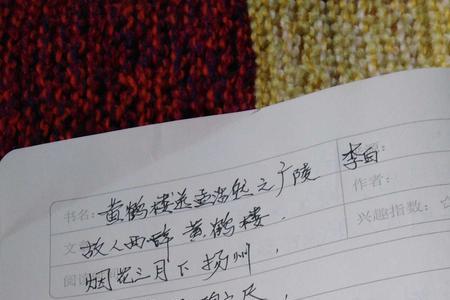 书名：黄鹤楼送孟浩然之广陵 李白
作者：
文
故人西辞黄鹤楼．
兴趣指数：☆
阅
烟花三月下扬州，